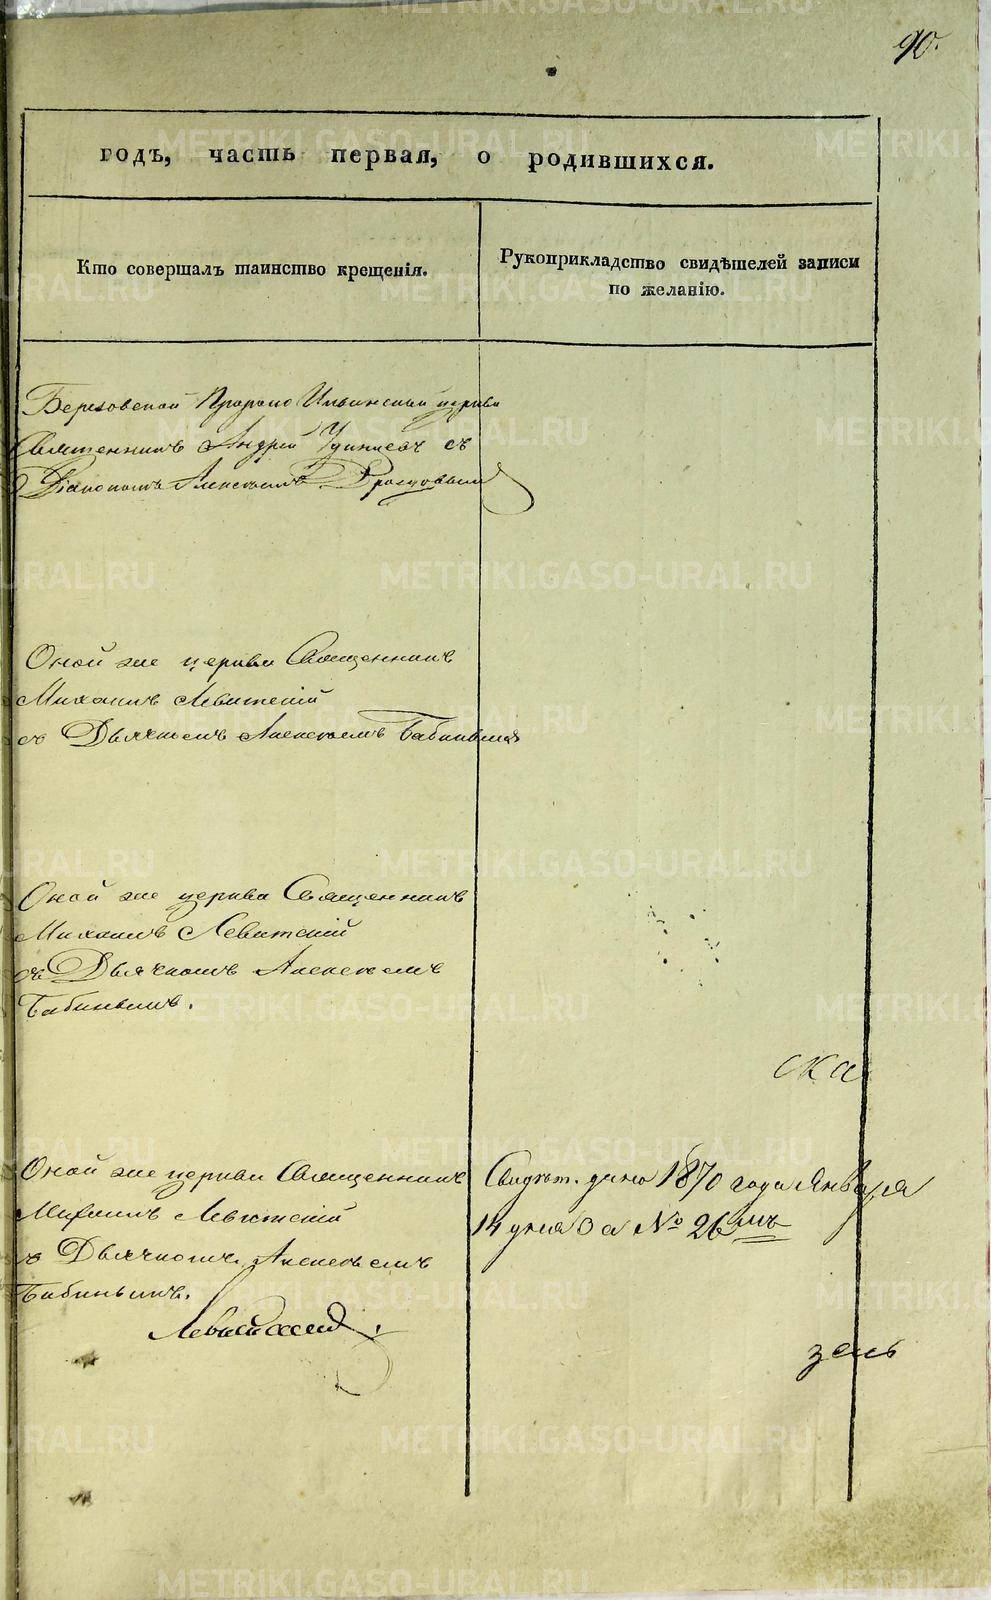 90.
годъ, часть первая, о родившихся.
Кто совершалъ таинство крещенія.
Рукоприкладство свидѣтелей записи
по желанію.
Березовской Пророко Ильинской церкви
Священникъ Андрей Удинцевъ съ
Діакономъ Алексѣемъ
Оной же церкви Священникъ
Михаилъ Левитскій
съ Дьячкомъ Алексѣемъ Бабинымъ
Оной же церкви Священникъ
Михаилъ Левитскій
съ Дьячкомъ Алексѣемъ
Бабинымъ.
ска
Оной же церкви Священникъ
Михаилъ Левитскій
съ Дьячкомъ Алексѣемъ
Бабинымъ.
Левитскій
Свидѣт. дано 1870 года Января
14 дня за № 26мъ
зень
METRIKI.GASO-URAL.RU